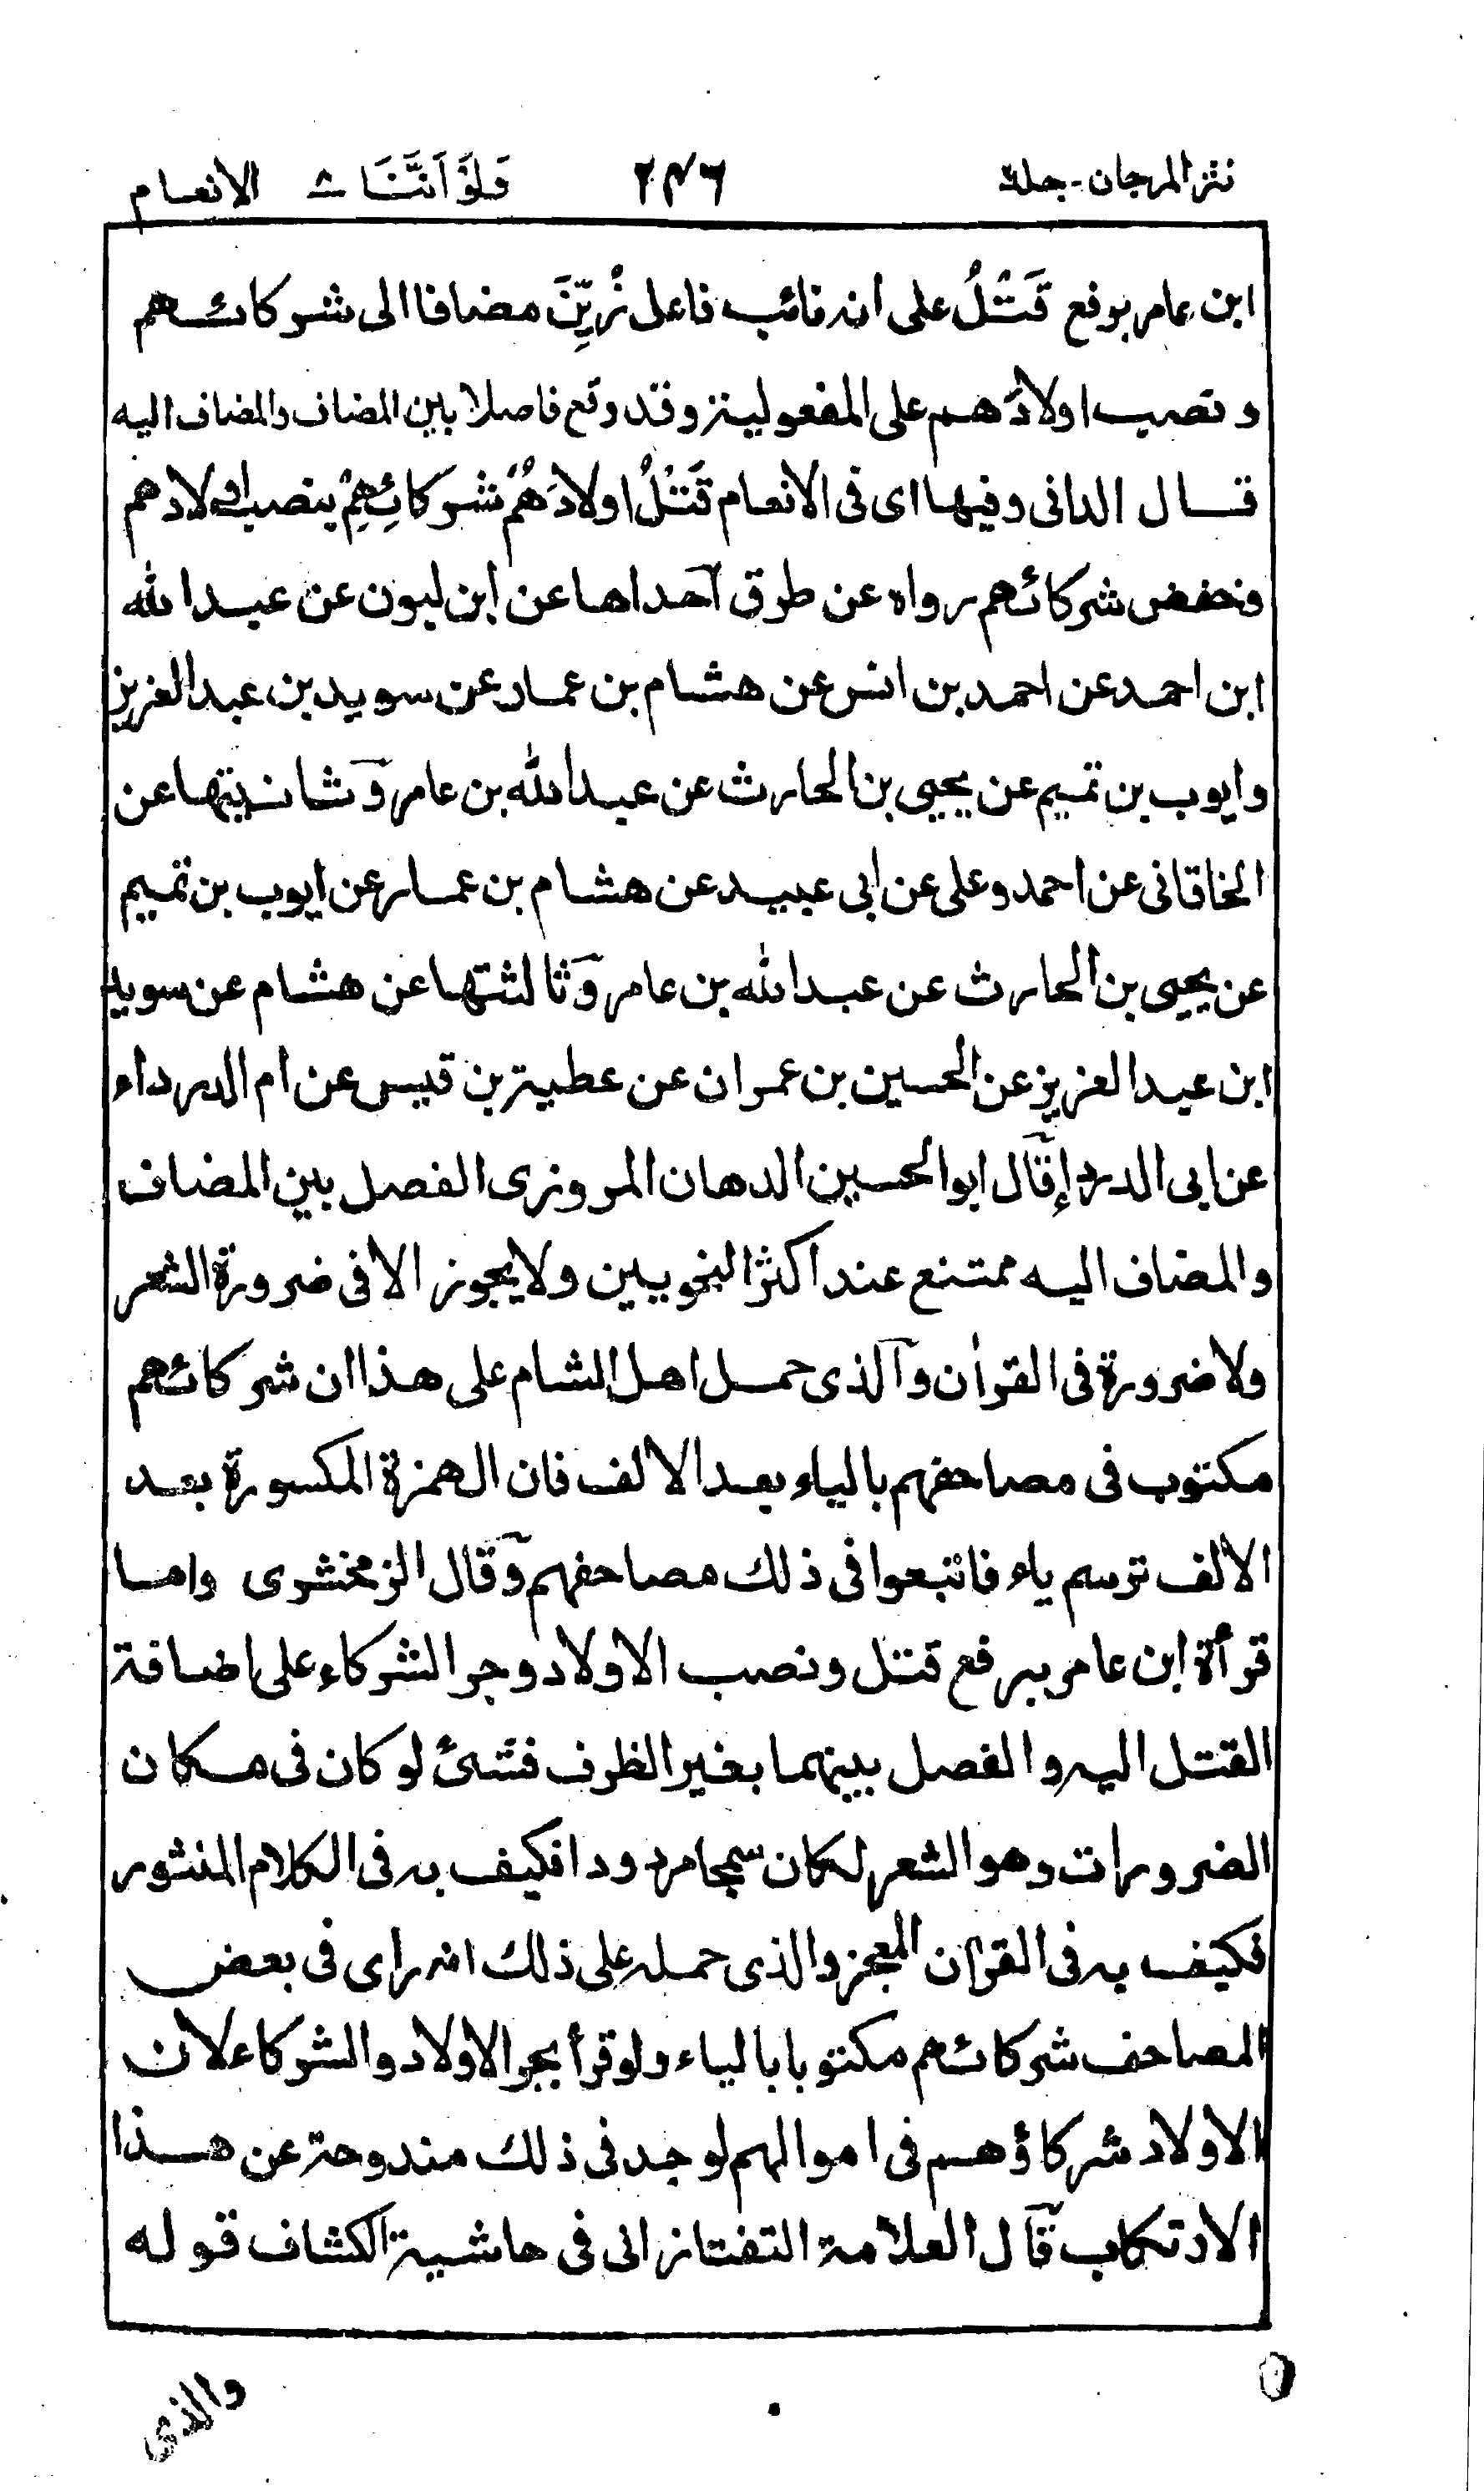 نثر المرجان - جلد ٢ ٢٤٦ وَلَوْ اَنَّنَا ٨ الانعام
ابن عامر برفع قَتْلُ على انه نائب فاعل زُيِّنَ مضافا الى شركائهم
ونصب اولادَهم على المفعولية وقد وقع فاصلا بين المضاف والمضاف اليه
قال الدانى وفيها اى فى الانعام قَتْلُ اولادَهُمْ شركائِهِمْ بنصب اولادهم
وخفض شركائهم رواه عن طرق آحداها عن ابن لبون عن عبد الله
ابن احمد عن احمد بن انس عن هشام بن عمار عن سويد بن عبد العزيز
وايوب بن تميم عن يحيى بن الحارث عن عبد الله بن عامر وّثانيتها عن
الخاقانى عن احمد وعلى عن ابى عبيد عن هشام بن عمار عن ايوب بن تميم
عن يحيى بن الحارث عن عبد الله بن عامر وّثالثتها عن هشام عن سويد
ابن عبد العزيز عن الحسين بن عمران عن عطية بن قيس عن ام الدرداء
عن ابى الدرداء قآل ابو الحسين الدهان المروزى الفصل بين المضاف
والمضاف اليه ممتنع عند اكثر النحويين ولا يجوز الا فى ضرورة الشعر
ولا ضرورة فى القراٰن وآلذى حمل اهل الشام على هذا ان شركائهم
مكتوب فى مصاحفهم بالياء بعد الالف فان الهمزة المكسورة بعد
الالف ترسم ياء فاتبعوا فى ذلك مصاحفهم وّقال الزمخشرى واما
قرأة ابن عامر برفع قتل ونصب الاولاد وجر الشركاء على اضافة
القتل اليه والفصل بينهما بغير الظرف فشئ لو كان فى مكان
الضرورات وهو الشعر لكان سمجا مردودا فكيف به فى الكلام المنثور
فكيف به فى القراٰن المعجز والذى حمله على ذلك انه راى فى بعض
المصاحف شركائهم مكتوبا بالياء ولو قرأ بجر الاولاد والشركاء لان
الاولاد شركاؤهم فى اموالهم لوجد فى ذلك مندوحة عن هذا
الارتكاب قآل العلامة التفتازانى فى حاشية الكشاف قوله
والذى